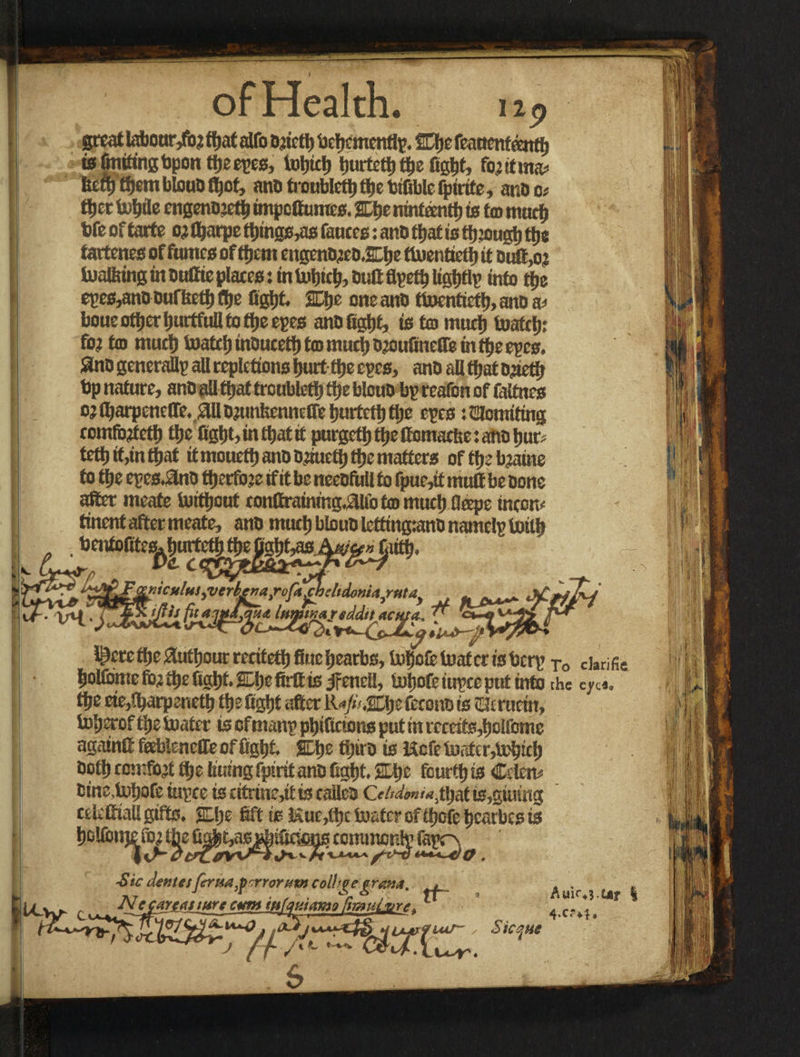 of Health. 129
great labour,for that also drieth vehementlp. The seauententh
is smiting vpon the eyes, which hurteth the sight, for it ma-
keth them bloud shot, and troubleth the visible spirite, and o-
ther while engendreth impostumes. The ninteenth is too much
vse of tarte or sharpe things,as sauces: and that is through the
tartenes of fumes of them engendred.The twentieth it dust,or
walking in dustie places: in which, dust flyeth lightly into the
eyes,and dusketh the sight. The one and twentieth, and a-
boue other hurtfull to the eyes and sight, is too much watch:
for too much watch induceth too much drousinesse in the eyes.
And generally all repletions hurt the eyes, and all that drieth
vp nature, and all that troubleth the bloud by reason of saltnes
or sharpenesse. All drunkennesse hurteth the eyes : Vomiting
comforteth the sight, in that it purgeth the stomacke: and hur-
teth it,in that it moueth and driueth the matters of the braine
to the eyes.And therfore if it be needfull to spue,it must be done
after meate without constraining.Also too much sleepe incon-
tinent after meate, and much bloud letting:and namely with
ventosites,hurteth the sight,as Auicen saith.
Fœniculus,verbena,rosa,chelidonia,ruta,
Ex istis fit aqua,qua lumina reddit acuta.
Here the Authour reciteth fiue hearbs, whose water is very
holsome for the sight. The first is Fenell, whose iuyce put into
To clarifie
the eyes.
the eie,sharpeneth the sight after Rasis.The second is Veruein,
wherof the water is of many phisicions put in receits,holsome
against feeblenesse of sight. The third is Rose water,which
doth comfort the liuing spirit and sight. The fourth is Celen-
dine,whose iuyce is citrine,it is called Celidonia,that is,giuing
celestiall gifts. The fift is Rue,the water of those hearbes is
holsome for the sight,as phisicions commonly say
Sic dentes serua,porrorum collige grana,
Ne careas iure cum insquiamo simul vre,
Auic.3.
4.
Sicque
S